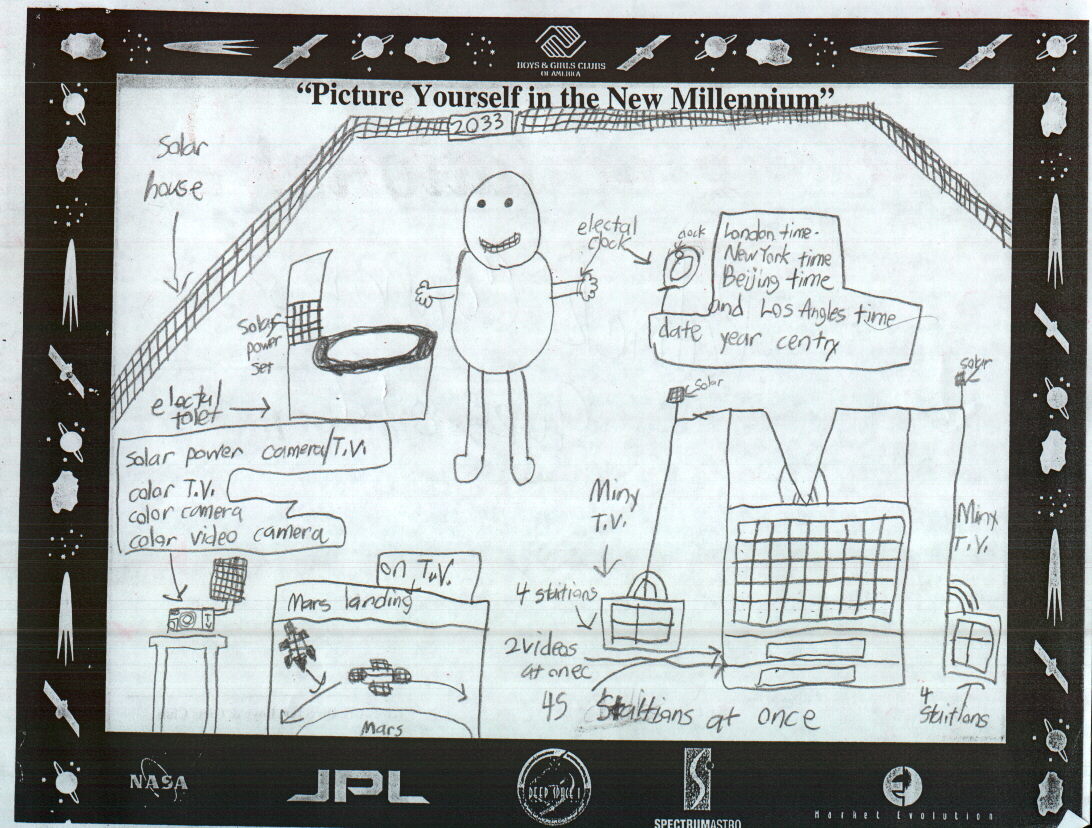 BOYS & GIRLS CLUBS
OF AMERICA
"Picture Yourself in the New Millennium"
2033
Solar
house
electal
clock
clock
London time-
New York time
Beijing time
and Los Angles time
date year centry
Solar
power
set
electul
tolet
solar
solar
solar power camera/T.V.
color T.V.
color camera
color video camera
Miny
T.V.
Miny
T.V.
on T.V.
Mars landing
Mars
4 staitians
2 videos
at onec
45 Staitians at once
4
staitians
NASA
JPL
DEEP SPACE 1
SPECTRUMASTRO
Market Evolution